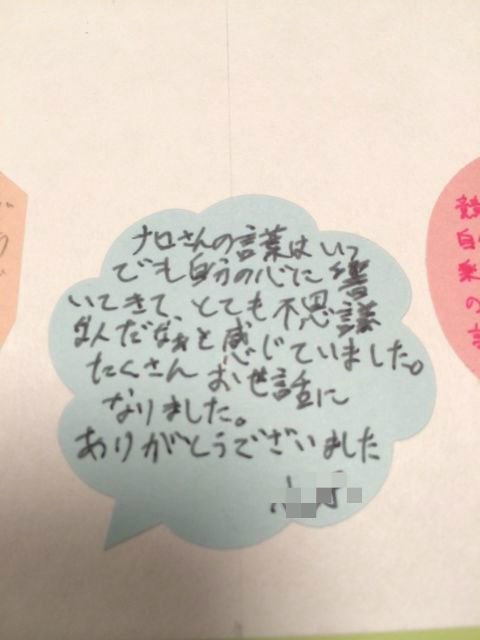 ナロさんの言葉はいつ
でも自分の心に響
いてきて、とても不思議
なんだなぁと感じていました。
たくさん お世話に
なりました。
ありがとうございました